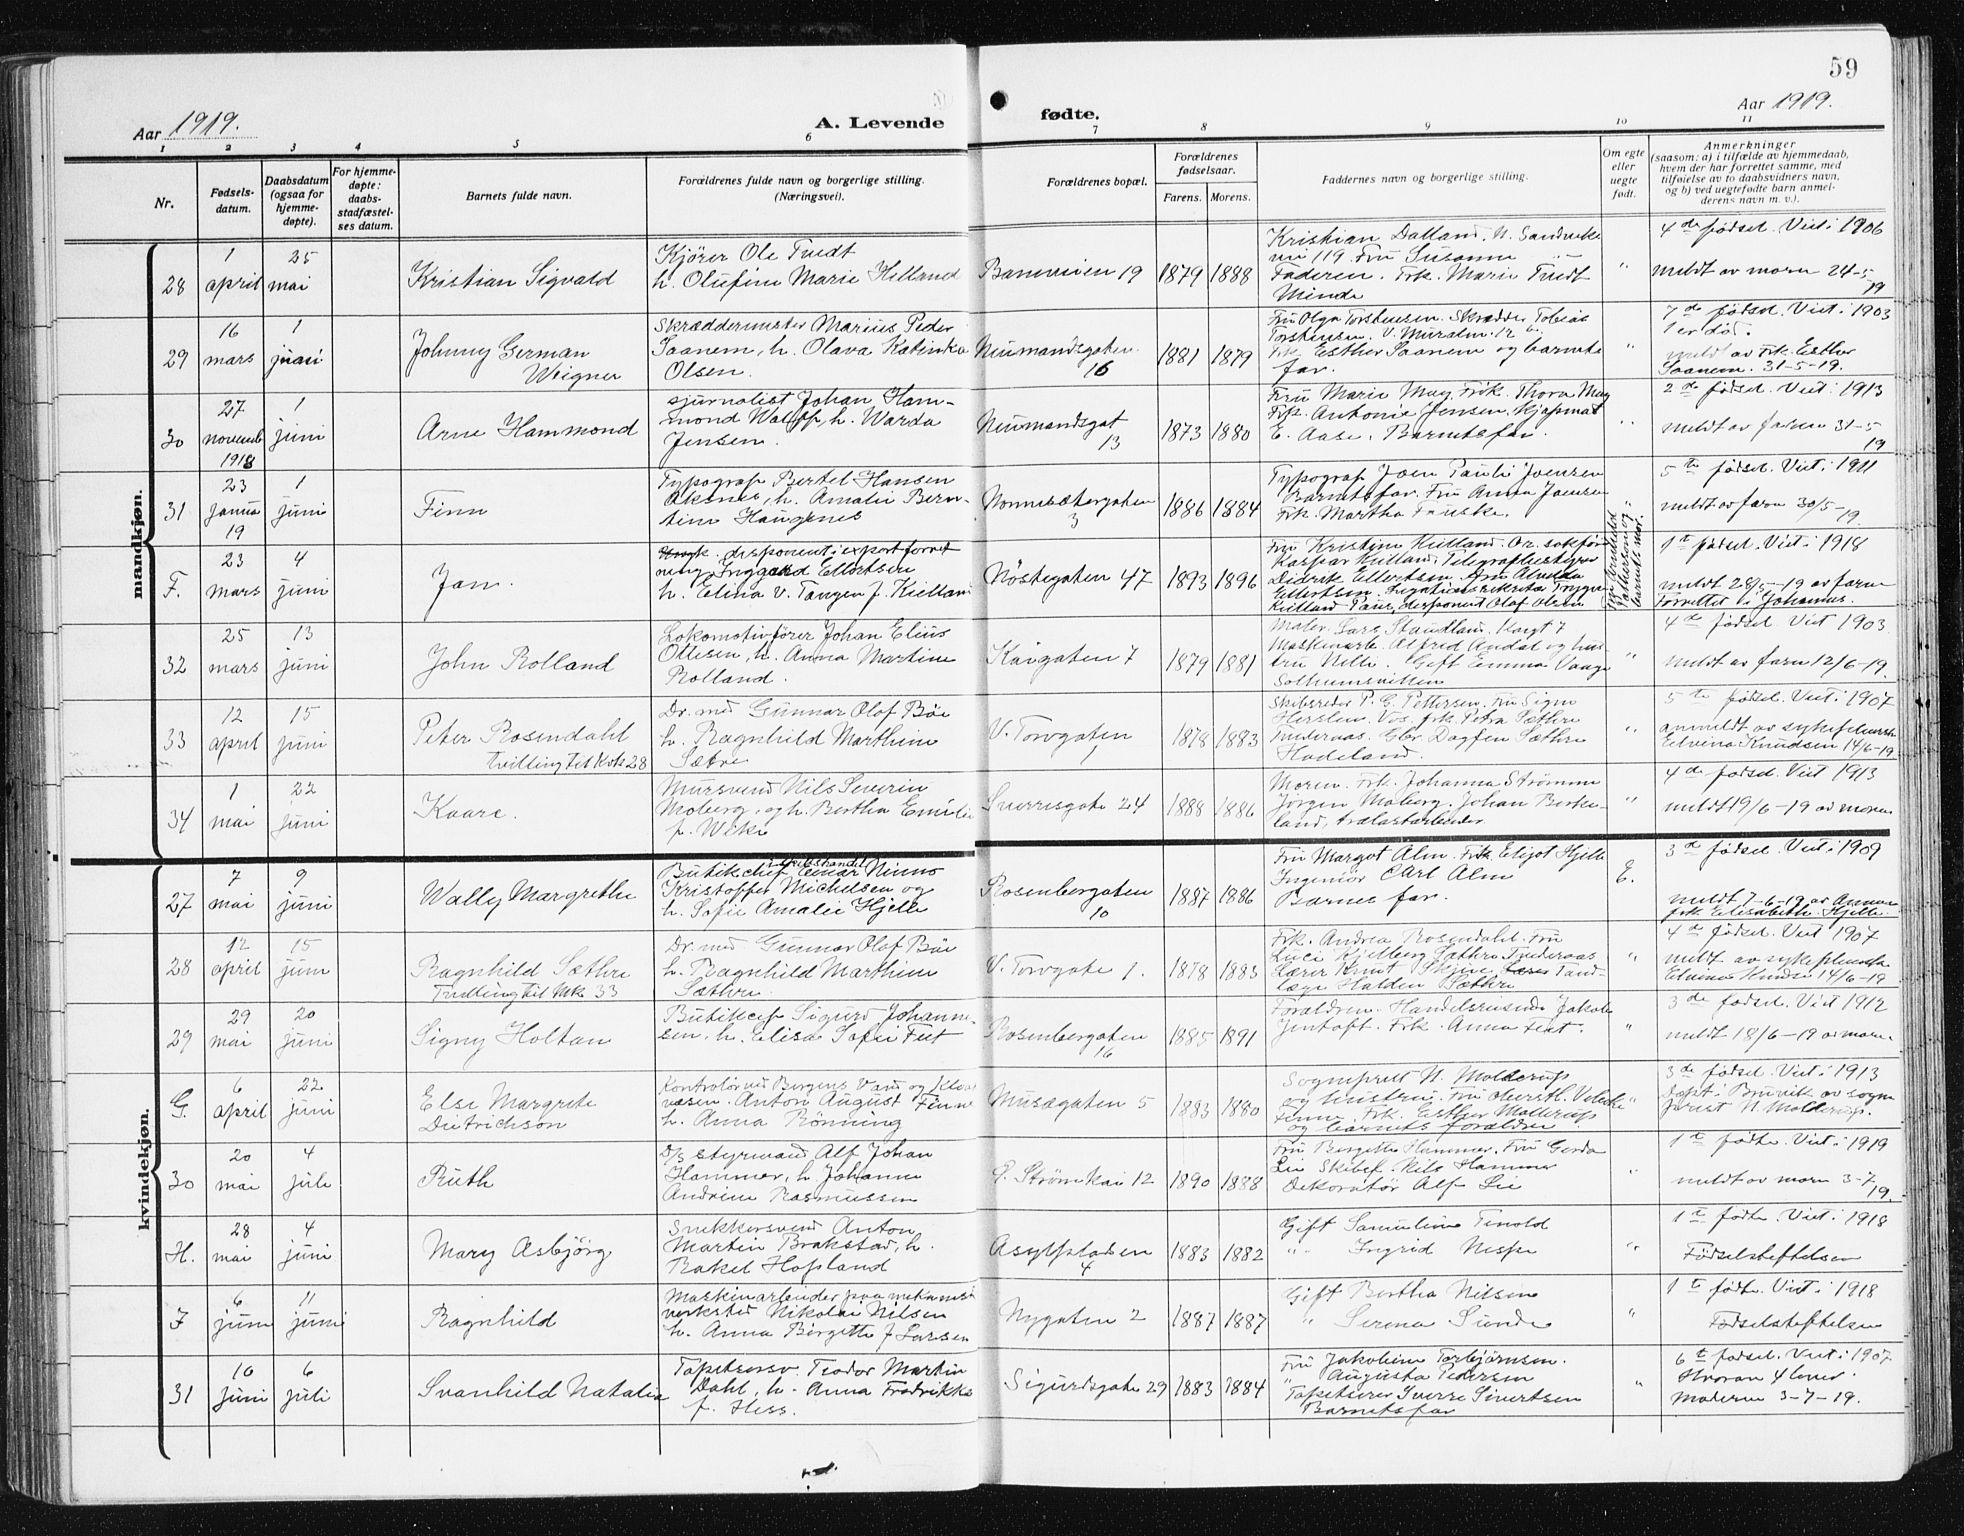 59
Aar 1919.
A. Levende
fødte.
Aar 1919.
1 2 3 4 5 6 7 8 9 10 11
Nr.
Fødsels-
datum.
Daabsdatum
(ogsaa for
hjemme-
døpte).
For hjemme-
døpte:
daabs-
stadfæstel-
ses datum.
Barnets fulde navn.
Forældrenes fulde navn og borgerlige stilling.
(Næringsvei).
Forældrenes bopæl.
Forældrenes
fødselsaar.
Farens. Morens.
Faddernes navn og borgerlige stilling.
Om egte
eller
uegte
født.
Anmerkninger
(saasom: a) i tilfælde av hjemmedaab,
hvem der har forrettet samme, med
tilføielse av to daabsvidners navn,
og b) ved uegtefødte barn anmel-
derens navn m. v.).
mandkjøn.
28
1
april
25
mai
Kristian Sigvald
Kjører Ole Tvedt
h. Olufine Marie Helland
Baneveien 19
1879 1888
Kristian Dalland, N. Sandviks
vei 119. Fru Susanne
Faderen. Frk. Marie Tvedt
Minde
"
4de fødsel. Viet i 1906
meldt av moren 24-5
19
29
16
mars
1
juni
Johnny German
Weigner
Skræddermester Marius Peder
Saanem, h. Olava Katinka
Olsen.
Neumandsgaten
16
1881 1879
Fru Olga Torstensen. Skrædder Tobias
Torstensen. V. Muralm. 12
Frk Esther Saanem og barnets
far.
"
7de fødsel. Viet i 1903
1 er død.
meldt av Frk. Esther
Saanem. 31-5-19.
30
27
novemb
1918
1
juni
Arne Hammond
sjurnalist Johan Ham-
mond h. Warda
Jensen.
Neumandsgat
13
1873 1880
Fru Marie May, Frk. Thora May
Frk. Antonie Jensen, Kjøpmat
E. Aase, Barnets far.
"
2de fødsel. Viet i 1913
meldt av faren 31-5
19
31
23
janua
19
1
juni
Finn
Typograf Bertel Hansen
Aksnes, h. Amalie Bern-
tine Haugenes
Nonnesætergaten
3
1886 1884
Typograf Joen Pauli Joensen
Barnets far. Fru Anna Joensen
Frk. Martha Fauske.
"
5te fødsel. Viet i 1911
meldt av faren 30/5-19.
F.
23
mars
4
juni
Jan.
disponent i exportforret
ning Inggard Ellertsen
h. Elina v. Tangen f. Kielland
Nøstegaten 47
1893 1896
Fru Kristine Kielland. Or. sakfører
Kaspar Kielland, Telegrafbestyrer
Didrik Ellertsen, Fru Alvilda
Ellertsen. Legationssekretær Trygve
Kielland Paus, disponent Olaf Olsen
barnets mor.
1te fødsel. Viet i 1918
meldt 28/5-19 av faren
Forrettet i Johannes.
32
25
mars
13
juni
John Rolland
Lokomotivfører Johan Elius
Ottesen, h. Anna Martine
Rolland.
Kaigaten 7
1879 1881
Maler Lars Standland. Korgt 7
Maskinarb. Alfred Andal og hus-
tru Nelle. Gift Emma Vaage
Solheimsviken
"
4de fødsel. Viet 1903.
meldt av faren 12/6-19.
33
12
april
15
juni
Peter Rosendahl
tvilling til Kvk 28
Dr. med Gunnar Olof Böe
h. Ragnhild Marthine
Sætre
V. Torvgaten
1
1878 1883
Skibsreder P. G. Pettersen. Fru Signe
Frk. Petra Sæthre
Dagfin Sæthre
Hadeland.
"
5te fødsel. Viet i 1907
anmeldt av sykepleiersk
Elvina Knudsen 14/6-19.
34
1
mai
22
juni
Kaare.
Mursvend Nils Severin
Moberg, og h. Bertha Emilie
f. Weke
Sverresgate 24
1888 1886
Moren. Frk. Johanna Strømme
Jørgen Moberg. Johan Birke-
land, trælastarbeider
"
4de fødsel. Viet 1913
meldt 19/6-19 av moren
kvindekjøn.
27
7
mai
9
juni
Wally Margrethe
Butikchef Einar Ninno
Kristoffer Michelsen og
h. Sofie Amalie Hjelle
Rosenbergaten
10
1887 1886
Fru Margot Alm. Frk. Hjelle
Ingeniör Carl Alm
Barnes far.
E.
3de fødsel. Viet i 1909
meldt 7-6-19 av
frk. Elisabeth Hjelle
28
12
april
15
juni
Ragnhild Sæthre
Tvilling til Mk. 33
Dr. med Gunnar Olof Böe
h. Ragnhild Marthine
Sæthre.
V. Torvgate 1.
1878 1883
Frk. Andrea Rosendahl. Fru
Lærer Knut Skjeie Tand-
læge Halden Sæthre
"
4de fødsel. Viet 1907
meldt
av sykepleiersk
Elvina Knudse 14/6-19
29
29
mai
20
juni
Signy Holtan
Butikcef Sigurd Johanne-
sen, h. Elisa Sofie Feet
Rosenbergaten
16
1885 1891
Foraldren. Handelsreisende Jakob
Jentoft. Frk. Anna Feet.
"
3de fødsel. Viet 1912
meldt 18/6-19 av more
G.
6
april
22
juni
Else Margrete
Dietrichson
Kontrolör ved Bergens Vand og Kloa
væsen. Anton August Finne
h. Anna Rönning
Musægaten 5
1883 1880
Sogneprest N. Molderup
og hustru. Fru oberstl. Vibecke
Finne, Frk. Esther Molderup
og barnets foraldre
"
3de fødsel. Viet i 1913
Døpt i Bruvik av sogne
prest N. Molderup.
30
20
mai
4
juli
Ruth
D/s styrmand Alf Johan
Hammer, h Johanne
Andrine Rasmussen
S. Strømkai 12
1890 1888
Fru Bergitte Hammer, Fru Gerda
Lie Skibef. Nils Hammer
Dekoratör Alf Lie
"
1te fødte. Viet i 1919
meldt av moren 3-7
19.
H.
28
mai
4
juni
Mary Asbjörg
Snekkersvend Anton
Martin Brakstad, h.
Rakel Hopland
Asylpladsen
4
1883 1882
Gift Samuline Tenold
" Ingrid Nespe
"
1te fødte. Viet i 1918
Fødselsstiftelsen
F
6
juni
11
juni
Ragnhild
Maskinarbeider paa mekanisk
verksted Nikolai Nilsen
h. Anna Birgitte f Larsen
Nygaten 2
1887 1887
Gift Bertha Nilsen
" Serena Sunde
"
1te fødte. Viet i 1918
Fødselsstiftelsen
31
10
juni
6
juli
Svanhild Natalie
Tapetsersv. Teodor Martin
Dahl, h. Anna Fredrikke
f. Hess.
Sigurdsgate 29
1883 1884
Fru Jakobine Torbjørnsen.
" Augusta Pedersen
Tapetserer Sverre Sivertsen
Barnets far
"
6te fødsel. Viet i 1907
Hvorav 4 lever
Moderen 3-7-19.